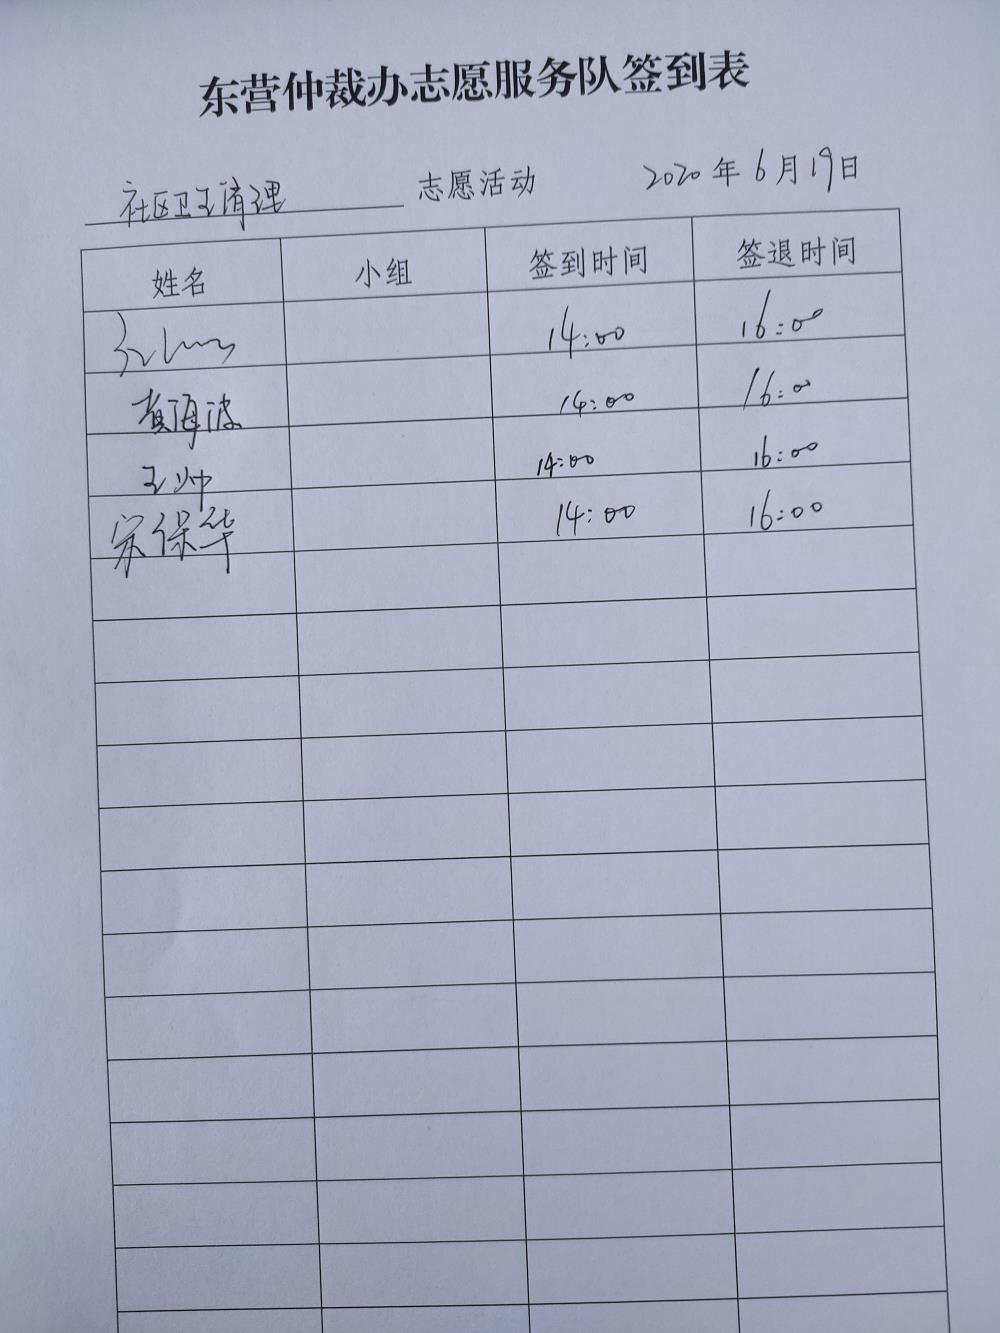 东营仲裁办志愿服务队签到表
社区卫生清理 志愿活动 2020年6月19日
姓名 小组 签到时间 签退时间
14:00 16:00
黄海波 14:00 16:00
王帅 14:00 16:00
宋保华 14:00 16:00